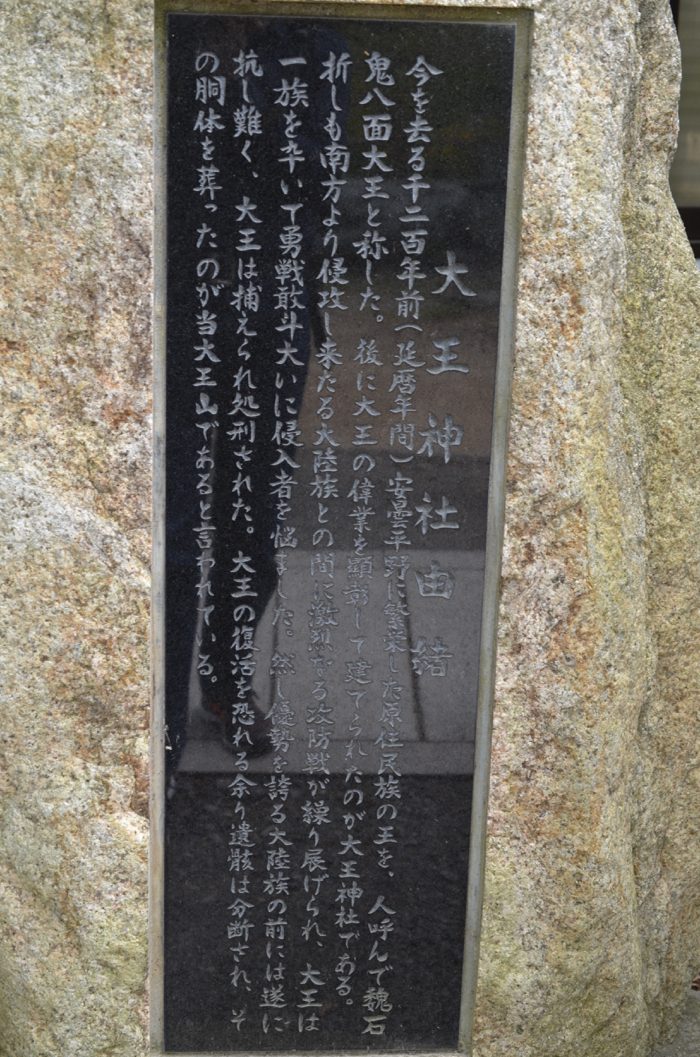 大王神社由緒
今を去る千二百年前(延暦年間)安曇平野に繁栄した原住民族の王を、人呼んで魏石
鬼八面大王と称した。後に大王の偉業を顕彰して建てられたのが大王神社である。
折しも南方より侵攻し来たる大陸族との間に激烈なる攻防戦が繰り展げられ、大王は
一族を卒いて勇戦敢斗大いに侵入者を悩ました。然し優勢を誇る大陸族の前には遂に
抗し難く、大王は捕えられ処刑された。大王の復活を恐れる余り遺骸は分断され、そ
の胴体を葬ったのが当大王山であると言われている。